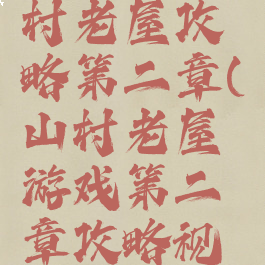 村老屋攻
略第二章(
山村老屋
游戏第二
章攻略视